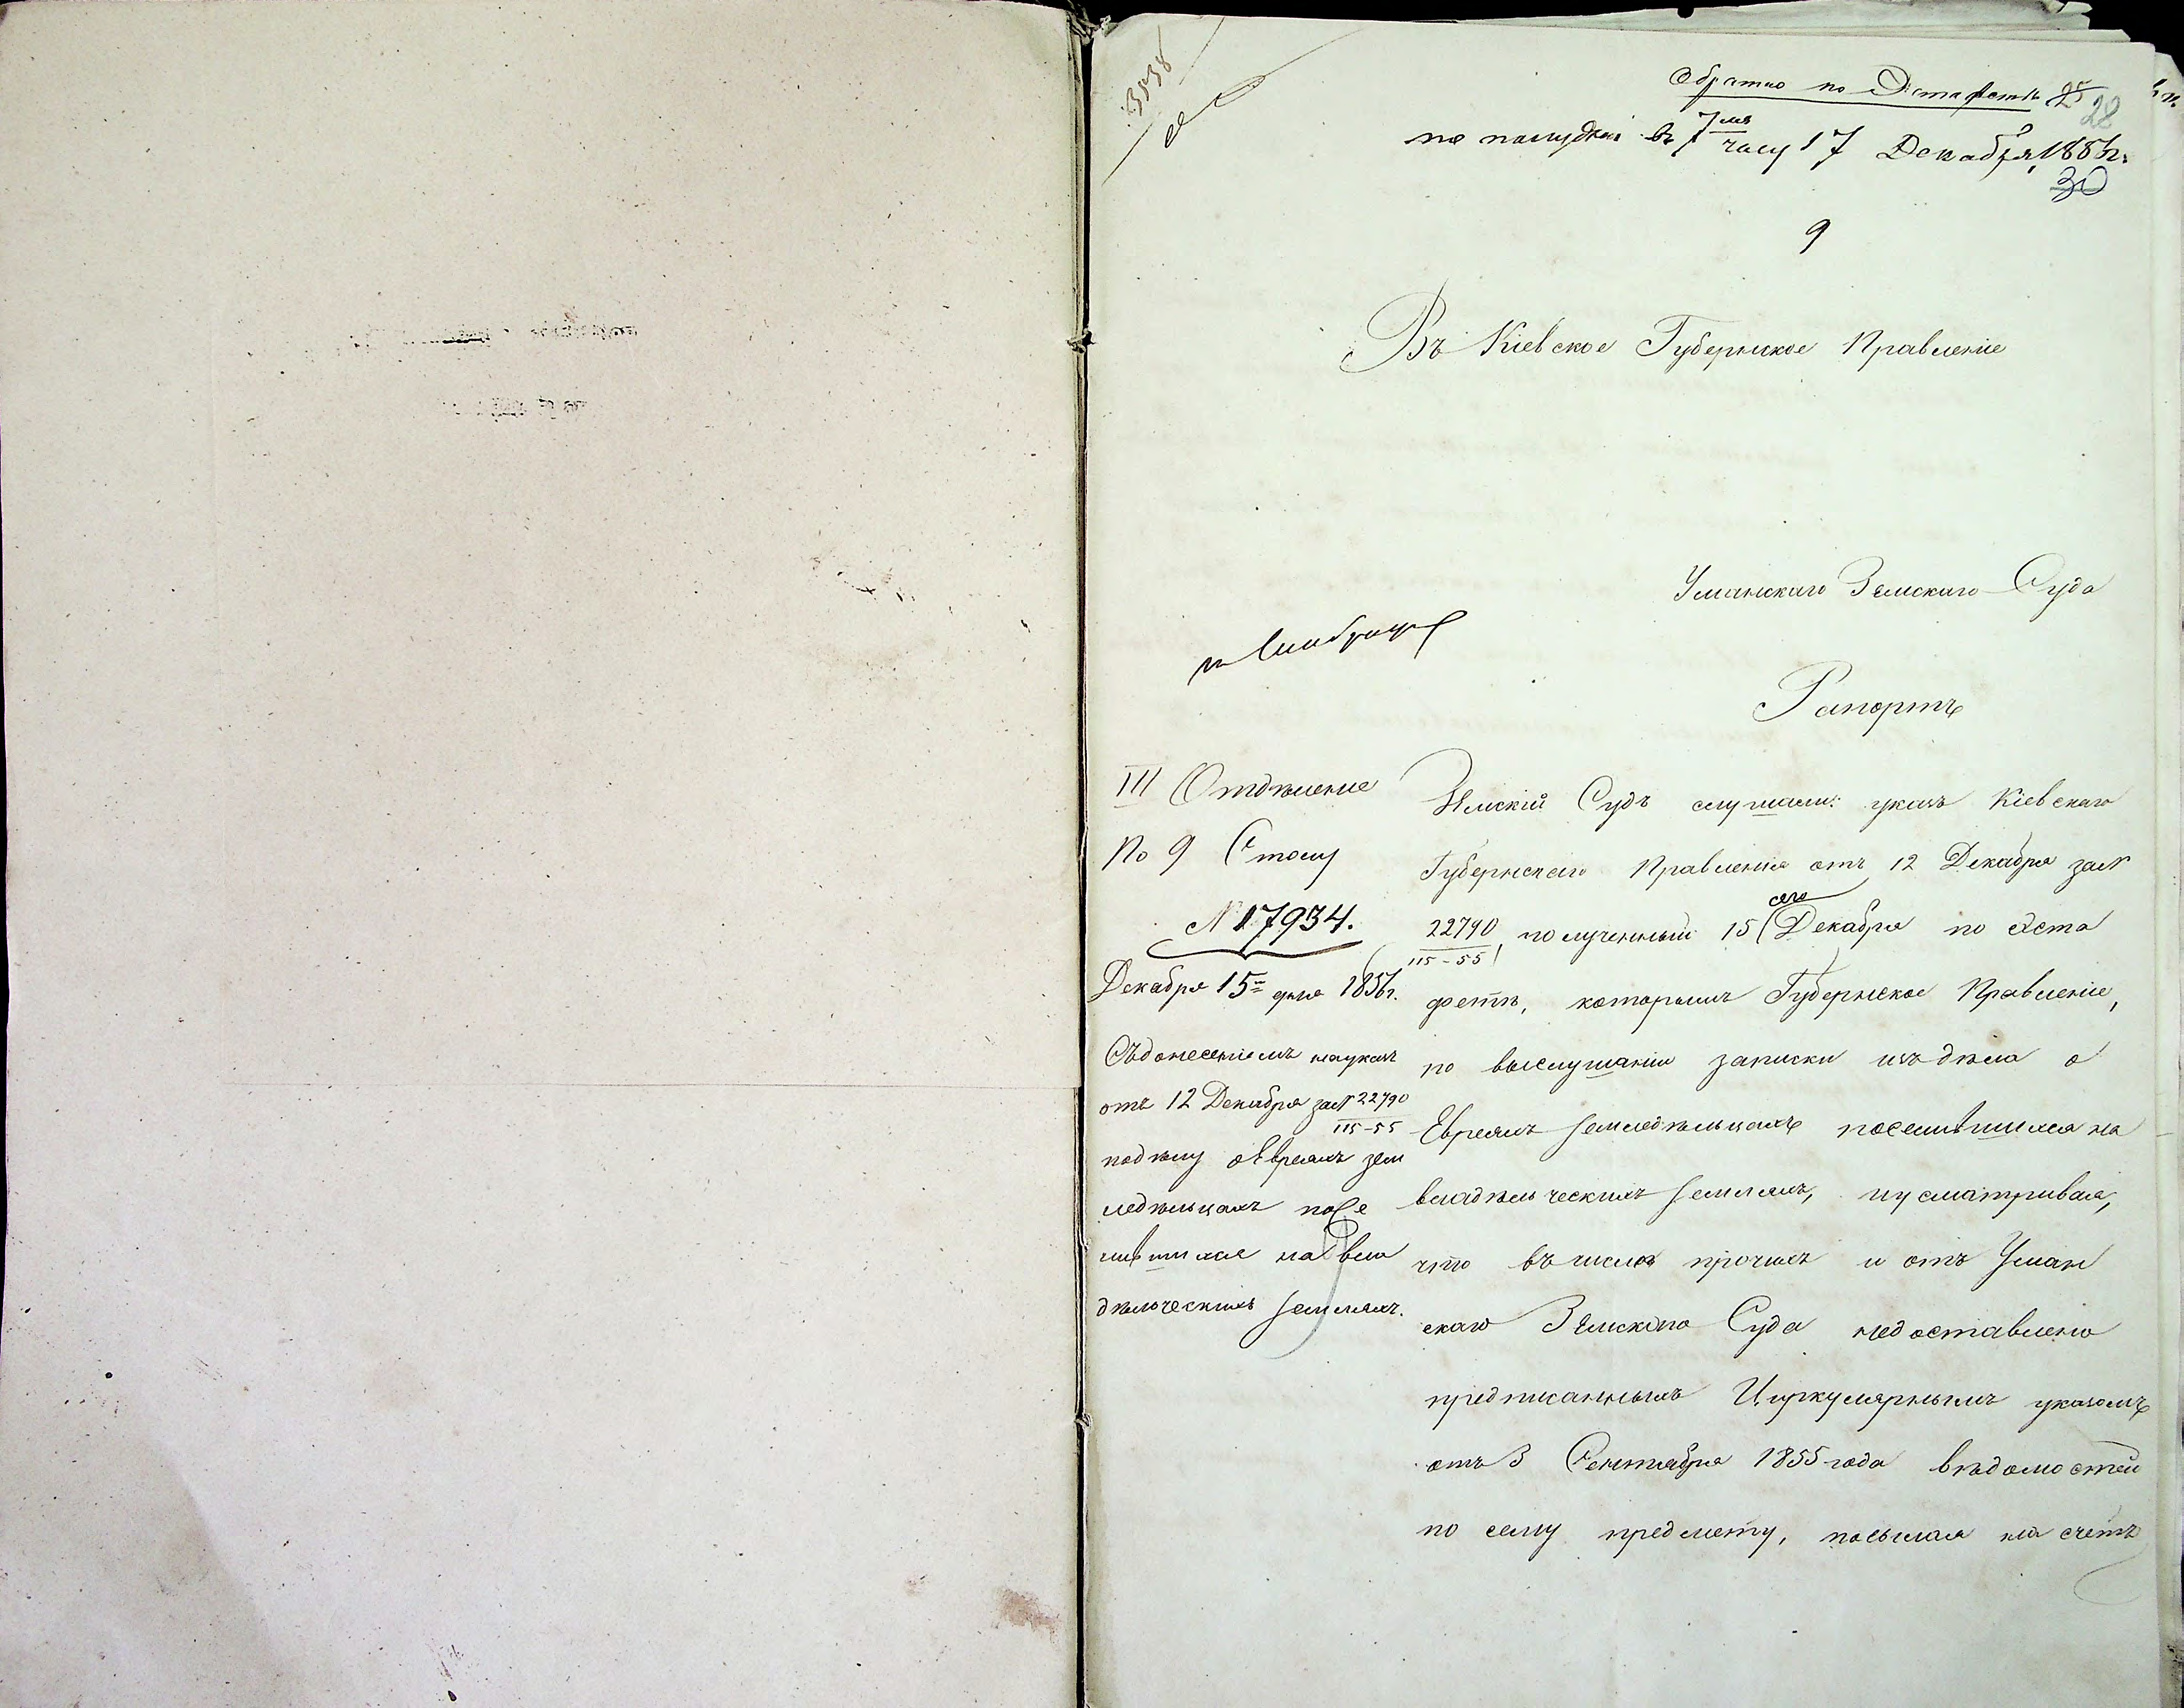 3538
Обратно по Эстафетѣ 25
28
по полудни въ 7мъ часу 17 Декабря 1856 г.
30
9
Въ Кіевское Губернское Правленіе
Уманскаго Земскаго Суда
Рапортъ
III Отдѣленіе
По 9 Столу
№ 17934.
Декабря 15 дня 1856 г.
Съ донесеніемъ на указъ
отъ 12 Декабря за № 22790
115-55
по дѣлу о Евреяхъ зем
ледѣльцахъ посе
лившихся на вла
дѣльческихъ земляхъ.
Земскій Судъ слушали: указъ Кіевскаго
Губернскаго Правленія отъ 12 Декабря за №
22790
115-55, полученный 15 сего Декабря по Эста
фетѣ, которымъ Губернское Правленіе,
по выслушаніи записки изъ дѣла о
Евреяхъ земледѣльцахъ поселившихся на
владѣльческихъ земляхъ, и усматривая,
что въ числѣ прочихъ и отъ Уман
скаго Земскаго Суда недоставлено
предписанныхъ Циркулярнымъ указомъ
отъ 3 Сентября 1855 года вѣдомостей
по сему предмету, посылая на счетъ